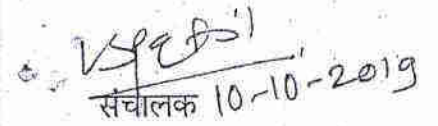 संचालक 10-10-2019